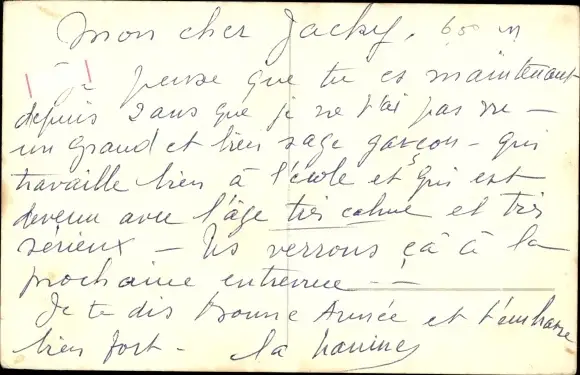 Mon cher Jacky,
Je pense que tu es maintenant
depuis 2 ans que je ne t'ai pas vu —
un grand et bien sage garçon - qui
travaille bien à l'école et qui est
devenu avec l'âge très calme et très
sérieux — Ns verrons çà à la
prochaine entrevue —
Je te dis Bonne Année et t'embrasse
bien fort - ta